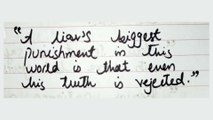 "A liar's biggest
punishment in this
world is that even
his truth is rejected."